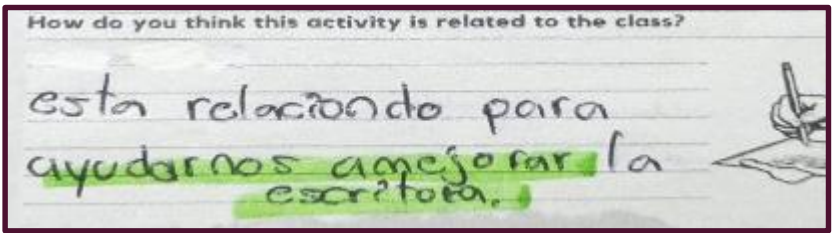 How do you think this activity is related to the class?
esta relaciondo para
ayudarnos amejorar la
escritora.